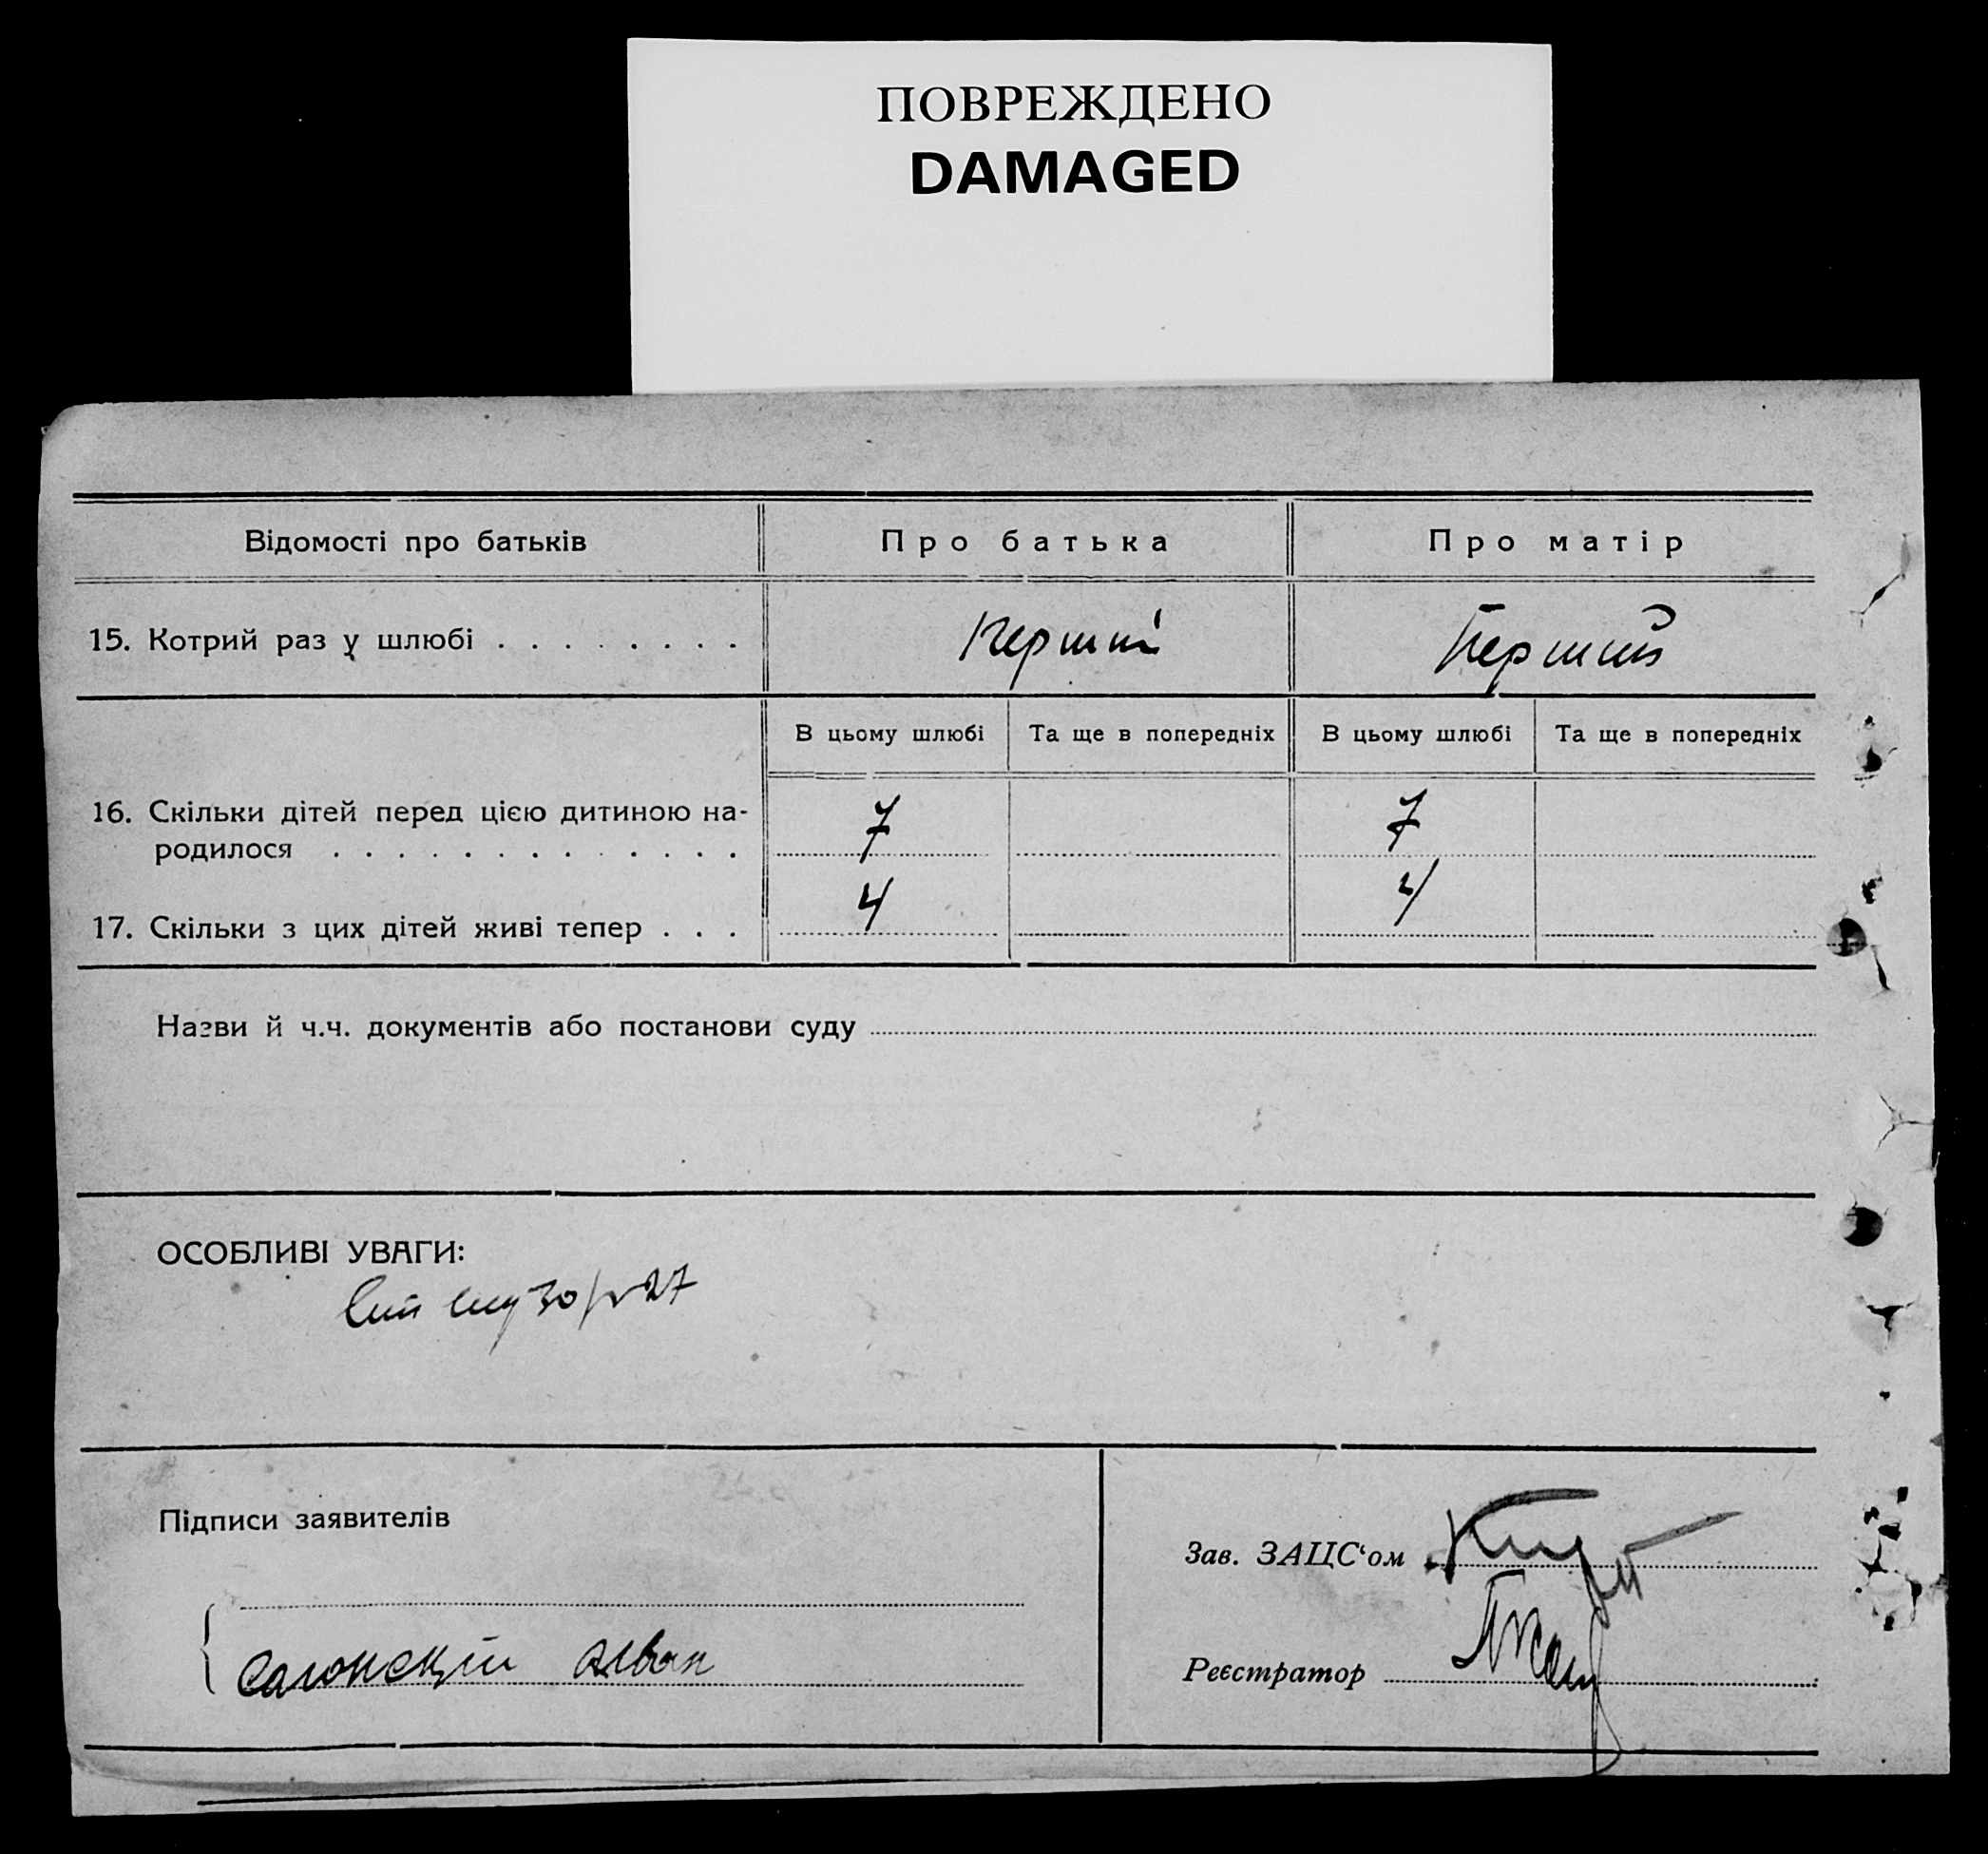 ПОВРЕЖДЕНО
DAMAGED
Відомості про батьків
Про батька
Про матір
15. Котрий раз у шлюбі . . . . . . . .
Перший
Перший
В цьому шлюбі
Та ще в попередніх
В цьому шлюбі
Та ще в попередніх
16. Скільки дітей перед цією дитиною на-
родилося . . . . . . . . . . . . .
7
7
17. Скільки з цих дітей живі тепер . . .
4
4
Назви й ч.ч. документів або постанови суду
ОСОБЛИВІ УВАГИ:
Підписи заявителів
Зав. ЗАЦС‘ом
Реєстратор